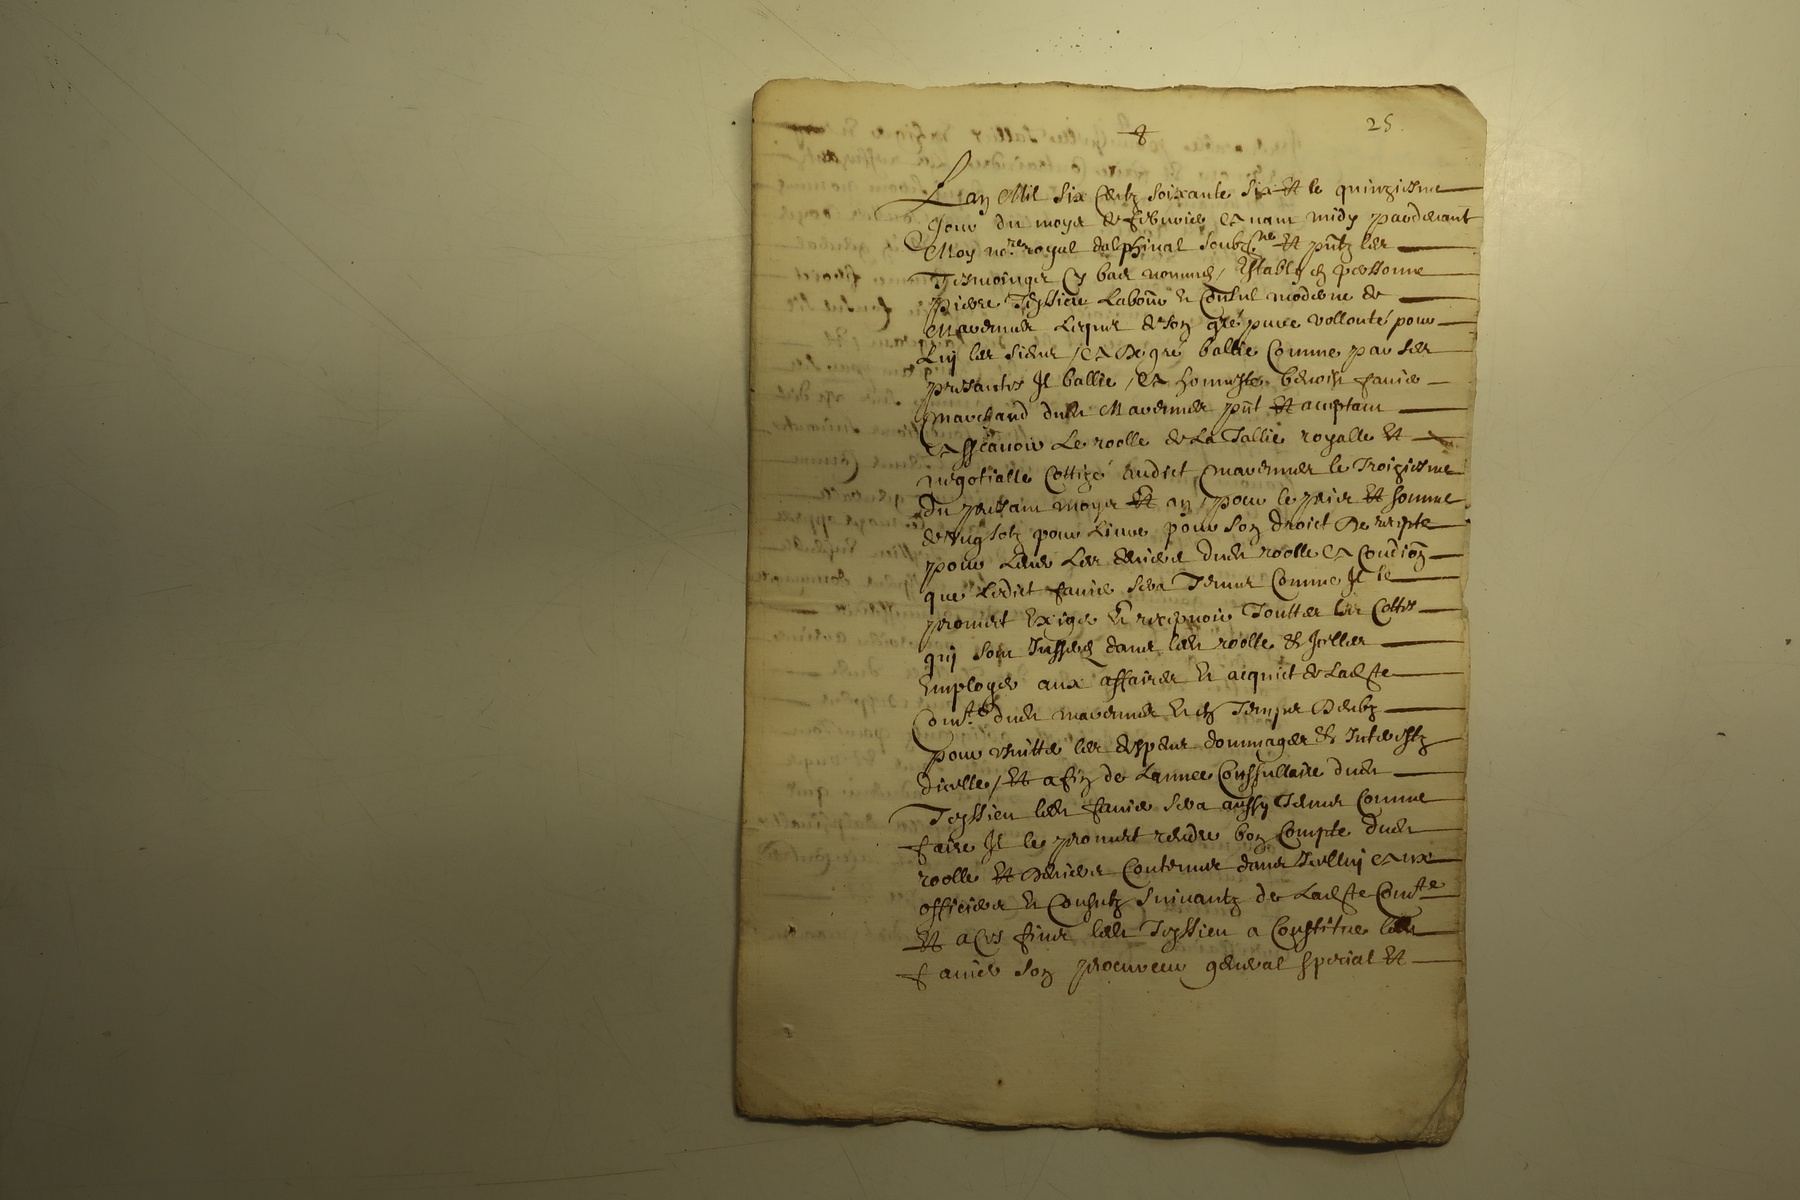 25.
Lan Mil Six Centz Soixante Six Et le quinziesme
Jour du moys de febvrier avant midy pardevant
Moy no.re royal dalphinal soubz.né Et pñtz les
Tesmoingz Cy bas nommés / Establi en personne
Pierre Teyssier Labour Et Consul moderne de
Mavermes Lequel de son gré pure vollonté pour
Luy les siens / A De gré ballie Comme par ses
presantes Il ballie / A honneste benoist favier
Marchand dudt Mavermes pñt Et acceptant
Assçavoir Le roolle de La Tallie royalle Et
negotialle Cottizé audict Mavermes le Troiziesme
du presant moys Et an / pour le prix Et somme
de Ving solz pour Livre pour son droict De recepte
pour Lever Les deniers dudt roolle A Condiõn
que Ledict favier sera Tenu Comme Il le
promet Exiger Et recepvoir Touttes les Cottes
quy sont Inssérés dans ledt roolle & Icelles
Employer aux affaires Et acquict de Ladte
Comte dudt mavermes Et en Temps Deubz
pour Esvitter les despens dommages & Interestz
dicelle / Et a fin de Lannee Conssullaire dudt
Teyssier ledt favier sera aussy Tenu Comme
faire Il le promet rendre bon Compte dudt
roolle Et Deniers Contenus dans Icelluy aux
officiers Et Consulz suivantz de Ladte Comte
Et a Ces fins ledt Teyssier a Constitue ledt
favier son procureur general special Et